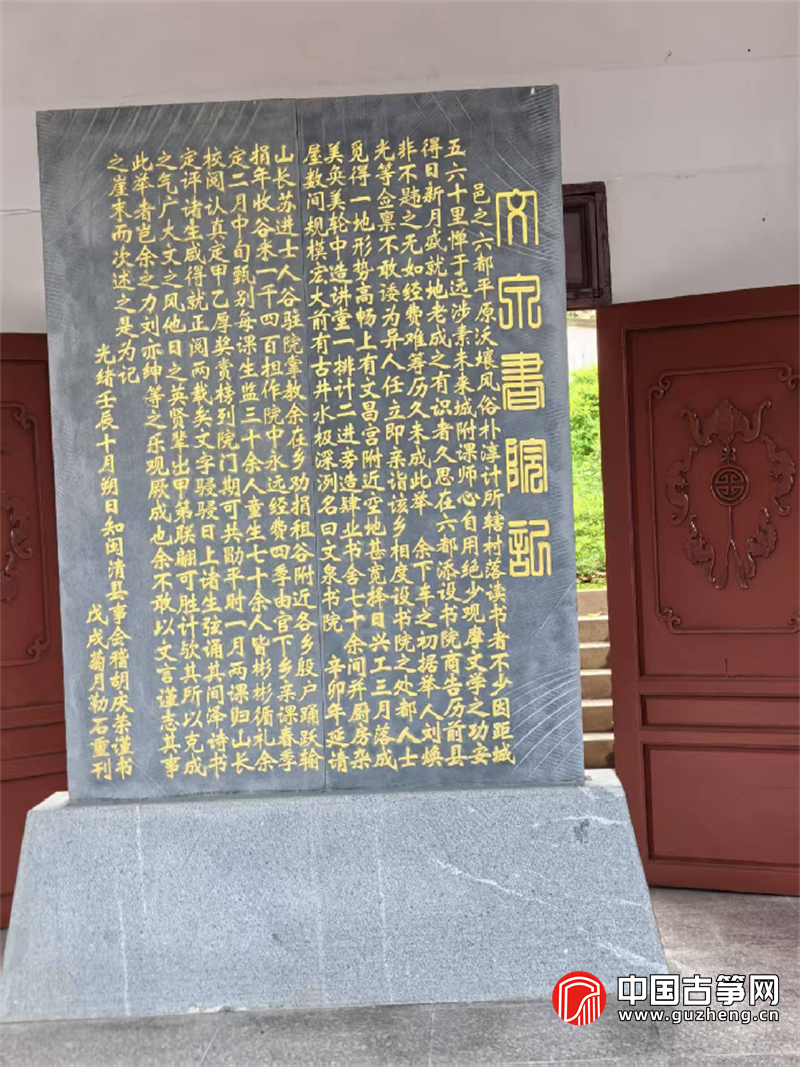 文泉書院記
邑之六都平原沃壤风俗朴淳计所辖村落读书者不少因距城
五六十里惮于远涉素未来城附课师心自用绝少观摩文学之功安
得日新月盛就地老成之有识者久思在六都添设书院商告历前县
非不韪之无如经费难筹历久未成此举 余下车之初据举人刘焕
光等佥禀不敢诿为异人任立即亲诣该乡相度设书院之处都人士
觅得一地形势高畅上有文昌宫附近空地甚宽择日兴工三月落成
美奂美轮中造讲堂一排计二进旁造肄业书舍七十余间并厨房杂
屋数间规模宏大前有古井水极深洌名曰文泉书院 辛卯年延请
山长苏进士人谷驻院掌教余在乡劝捐租谷附近各乡殷户踊跃输
捐年收谷米一千四百担作院中永远经费四季由官下乡亲课春季
定二月中旬甄别每课生监三十余人童生七十余人皆彬彬循礼余
校阅认真定甲乙厚奖赏榜列院门期可共勖平时一月两课归山长
定评诸生咸得就正阅两载矣文字骎骎日上诸生弦诵其间泽诗书
之气广大文之风他日之英贤辈出甲第联翩可胜计欤其所以克成
此举者岂余之力刘亦绅等之乐观厥成也余不敢以文言谨志其事
之崖末而次述之是为记
光绪壬辰十月朔日知闽清县事会稽胡庆荣谨书
戊戌菊月勒石重刊
中国古筝网
www.guzheng.cn